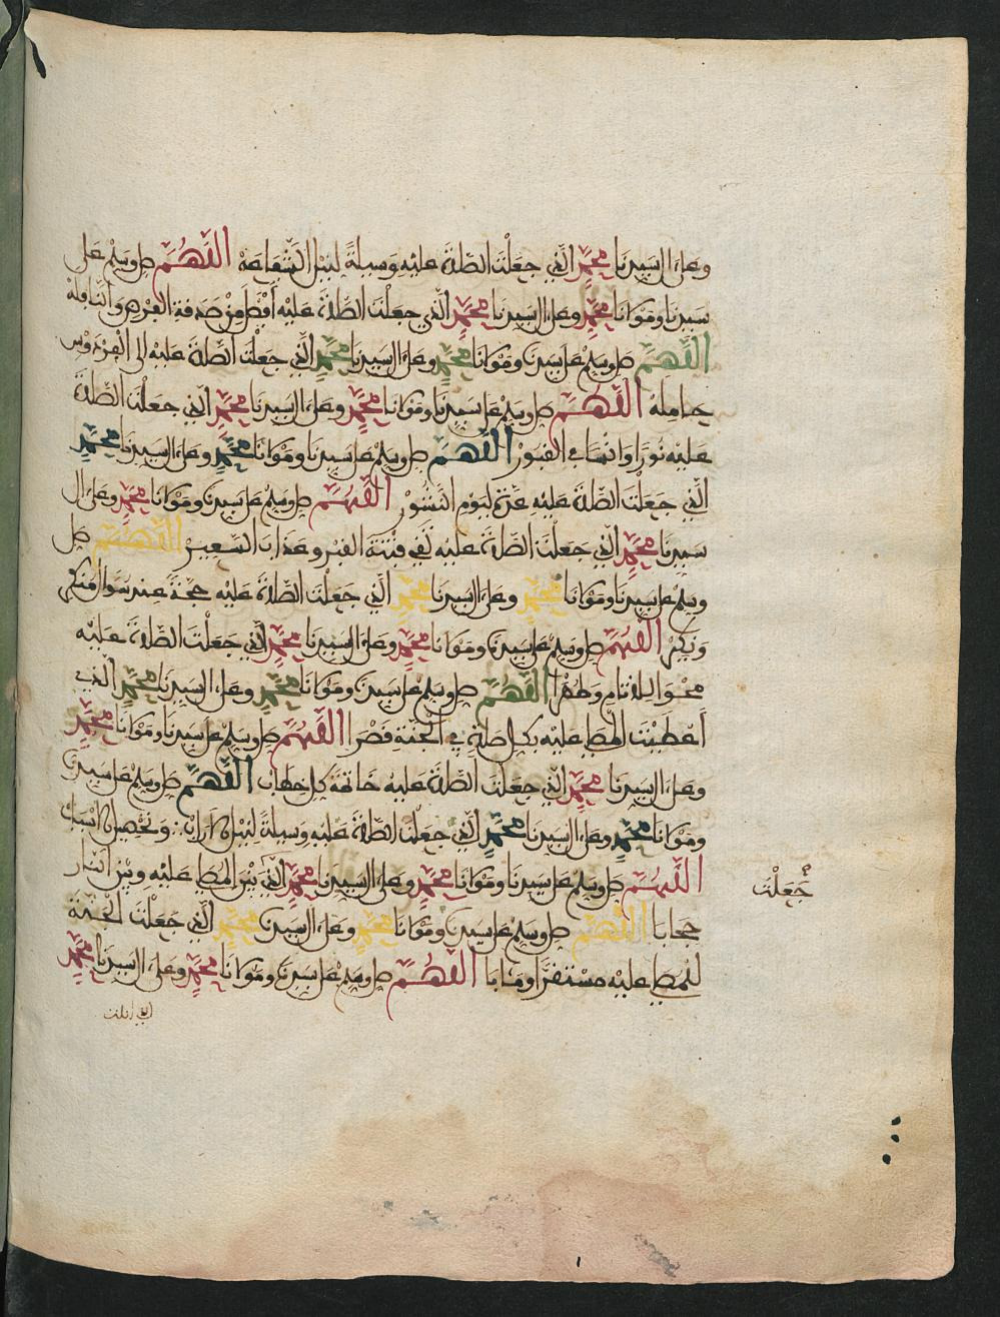 وعلى ال سيدنا محمد الذي جعلت الصلاة عليه وسيلة لنيل الشفاعة اللهم صل وسلم على
سيدنا ومولانا محمد وعلى ال سيدنا محمد الذي جعلت الصلاة عليه أفضل من صدقة الفرض والنافلة
اللهم صل وسلم على سيدنا ومولانا محمد وعلى ال سيدنا محمد الذي جعلت الصلاة عليه الى الفردوس
حاملة اللهم صل وسلم على سيدنا ومولانا محمد وعلى ال سيدنا محمد الذي جعلت الصلاة
عليه نورا في القبور اللهم صل وسلم على سيدنا ومولانا محمد وعلى ال سيدنا محمد
الذي جعلت الصلاة عليه عدة ليوم النشور اللهم صل وسلم على سيدنا ومولانا محمد وعلى ال
سيدنا محمد الذي جعلت الصلاة عليه تفي فتنة القبر وعذاب السعير اللهم صل
وسلم على سيدنا ومولانا محمد وعلى ال سيدنا محمد الذي جعلت الصلاة عليه حجة عند سوال منكر
ونكير اللهم صل وسلم على سيدنا ومولانا محمد وعلى ال سيدنا محمد الذي جعلت الصلاة عليه
محوا للاثام وطهرا اللهم صل وسلم على سيدنا ومولانا محمد وعلى ال سيدنا محمد الذي
أعطيت المصل عليه بكل صلاة في الجنة قصرا اللهم صل وسلم على سيدنا ومولانا محمد
وعلى ال سيدنا محمد الذي جعلت الصلاة عليه خاتمة كل خطاب اللهم صل وسلم على سيدنا
ومولانا محمد وعلى ال سيدنا محمد الذي جعلت الصلاة عليه وسيلة لنيل وتحصيل
اللهم صل وسلم على سيدنا ومولانا محمد وعلى ال سيدنا محمد الذي بين المصل عليه وبين النار
جعلت
حجابا اللهم صل وسلم على سيدنا ومولانا محمد وعلى ال سيدنا محمد الذي جعلت الجنة
للمصل عليه مستقرا ومئابا اللهم صل وسلم على سيدنا ومولانا محمد وعلى ال سيدنا محمد